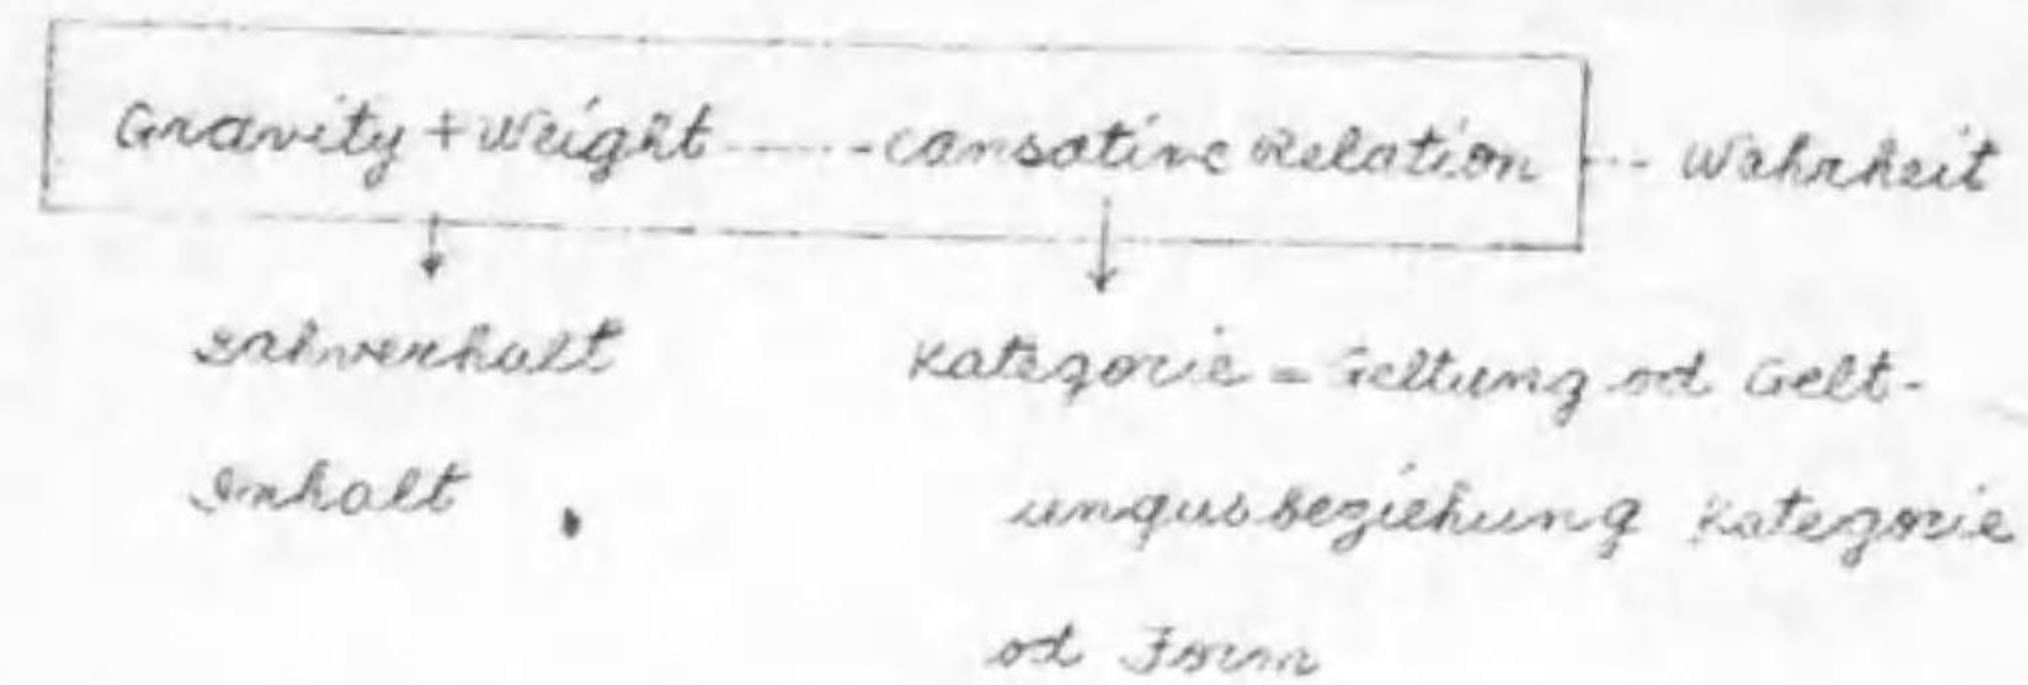 Gravity + Weight ------- Cansative Relation --- Wahrheit
Sahverhalt Kategorie = Geltung od Gelt-
Inhalt ungusbeziehung Kategorie
od Form